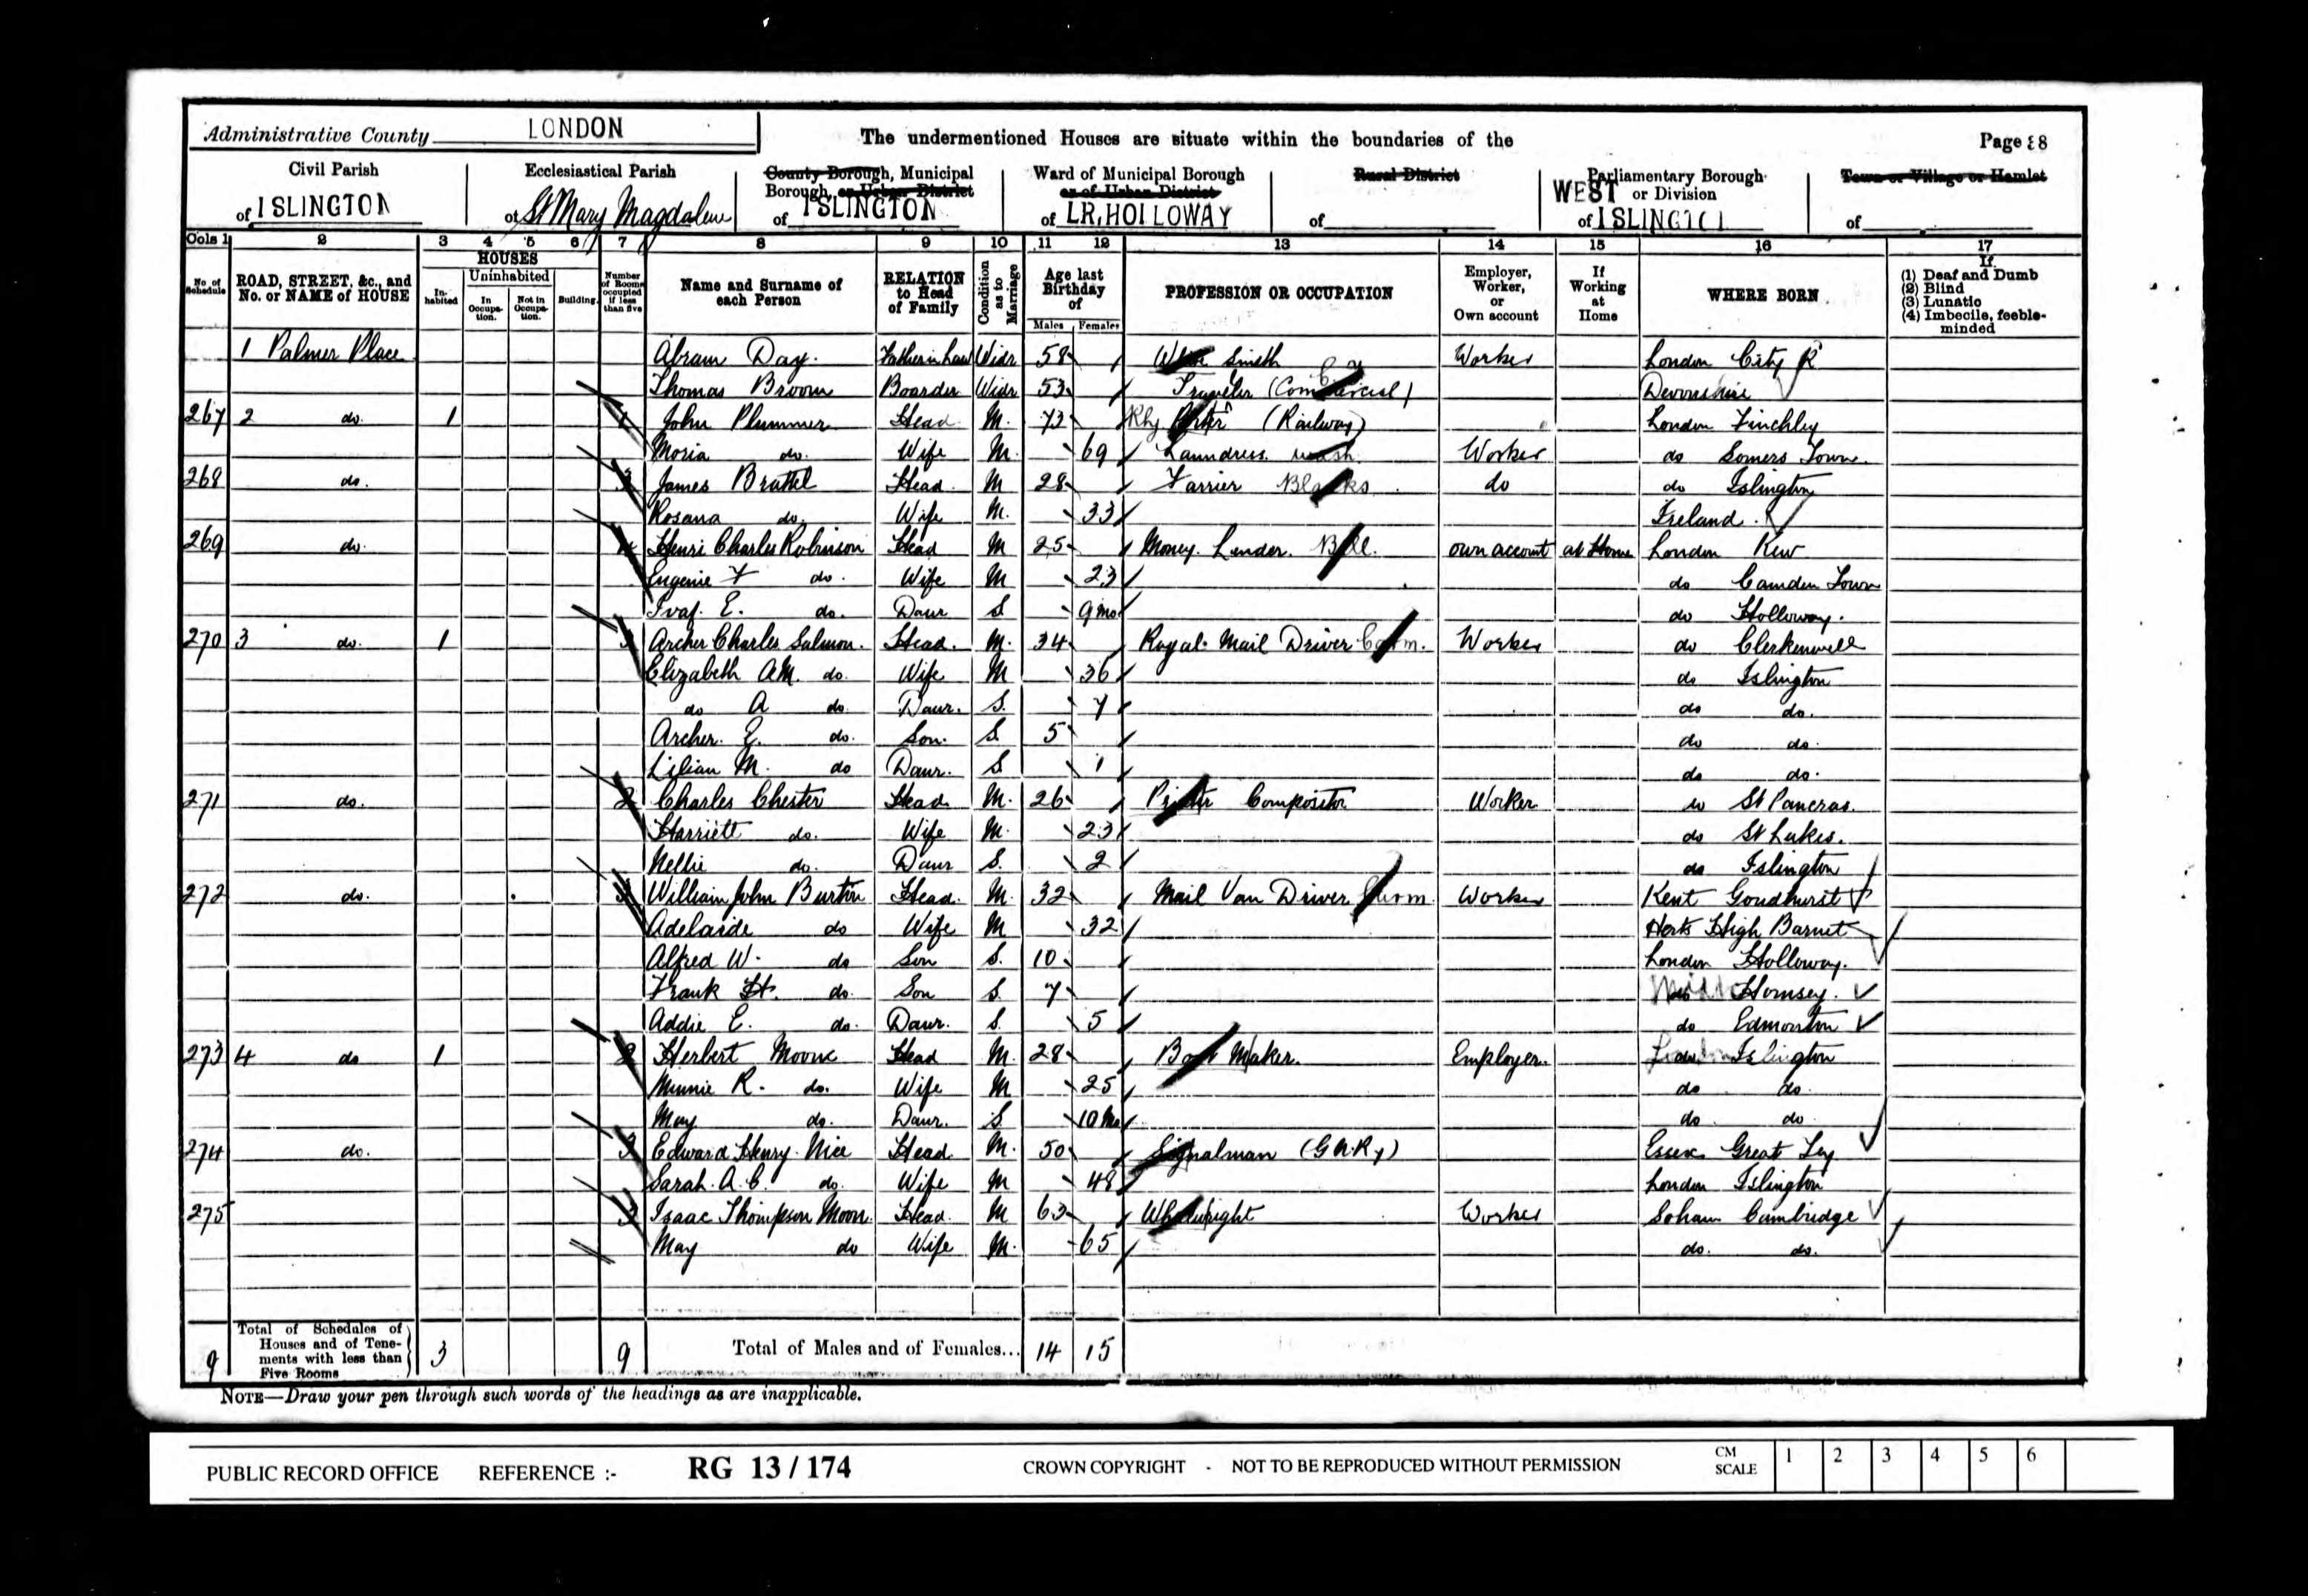 Administrative County LONDON
The undermentioned Houses are situate within the boundaries of the
Page 88
Civil Parish of ISLINGTON
Ecclesiastical Parish of St Mary Magdalene
County Borough, Municipal Borough, or Urban District of ISLINGTON
Ward of Municipal Borough or of Urban District of LR. HOLLOWAY
Rural District of
Parliamentary Borough or Division of WEST ISLINGTON
Town or Village or Hamlet of
Cols 1 2 3 4 5 6 7 8 9 10 11 12 13 14 15 16 17
No of Schedule
ROAD, STREET, &c., and No. or NAME of HOUSE
HOUSES
Inhabited
Uninhabited
In Occupation.
Not in Occupation.
Building.
Number of Rooms occupied if less than five
Name and Surname of each Person
RELATION to Head of Family
Condition as to Marriage
Age last Birthday of
Males Females
PROFESSION OR OCCUPATION
Employer, Worker, or Own account
If Working at Home
WHERE BORN
If (1) Deaf and Dumb (2) Blind (3) Lunatic (4) Imbecile, feeble-minded
1 Palmer Place Abram Day. Father in law Widr 58 Smith Worker London City R
Thomas Broom Boarder Widr 53 Traveler (Commercial) Devonshire
267 2 do. 1 1 John Plummer Head M. 73 Rly Porter (Railway) London Finchley
Moria do. Wife M. 69 Laundress wash Worker do Somers Town
268 do. 3 James Bruttel Head M 28 Farrier Blacks do do Islington
Rosana do. Wife M. 33 Ireland.
269 do. 4 Henri Charles Robinson Head M 25 Money. Lender. Bill. own account at Home London Kew
Eugenie F do. Wife M 23 do Camden Town
E. do. Daur S. 9 mo do Holloway.
270 3 do. 1 3 Archer Charles Salmon. Head. M. 34 Royal Mail Driver Worker do Clerkenwell
Elizabeth A.M. do. Wife M 36 do Islington
do A do Daur. S. 7 do do.
Archer. E. do. Son. S. 5 do do.
Lilian M. do Daur. S. 1 do do.
271 do. 2 Charles Chester Head. M. 26 Printer Compositor Worker do St Pancras.
Harriett do. Wife M. 23 do St Lukes.
Nellie do. Daur S. 2 do Islington
272 do. 3 William John Burton Head. M. 32 Mail Van Driver Worker Kent Goudhurst
Adelaide do Wife M 32 Herts High Barnet
Alfred W. do Son S. 10 London Holloway.
Frank H. do. Son S. 7 Hornsey.
Addie E. do. Daur. S. 5 do Edmonton
273 4 do 1 2 Herbert Moore Head M. 28 Boot Maker. Employer. London Islington
Minnie R. do. Wife M 25 do do.
May do. Daur. S. 10 Mo do do
274 do. 3 Edward Henry Nice Head M. 50 Signalman (G.N.Ry) Essex Great Ley
Sarah. A. C. do. Wife M 48 London Islington
275 3 Isaac Thompson Moon Head. M 63 Wheelwright Worker Soham Cambridge
May do Wife M. 65 do. do.
9 Total of Schedules of Houses and of Tenements with less than Five Rooms 3 9 Total of Males and of Females... 14 15
NOTE—Draw your pen through such words of the headings as are inapplicable.
PUBLIC RECORD OFFICE REFERENCE :- RG 13 / 174 CROWN COPYRIGHT - NOT TO BE REPRODUCED WITHOUT PERMISSION CM SCALE 1 2 3 4 5 6